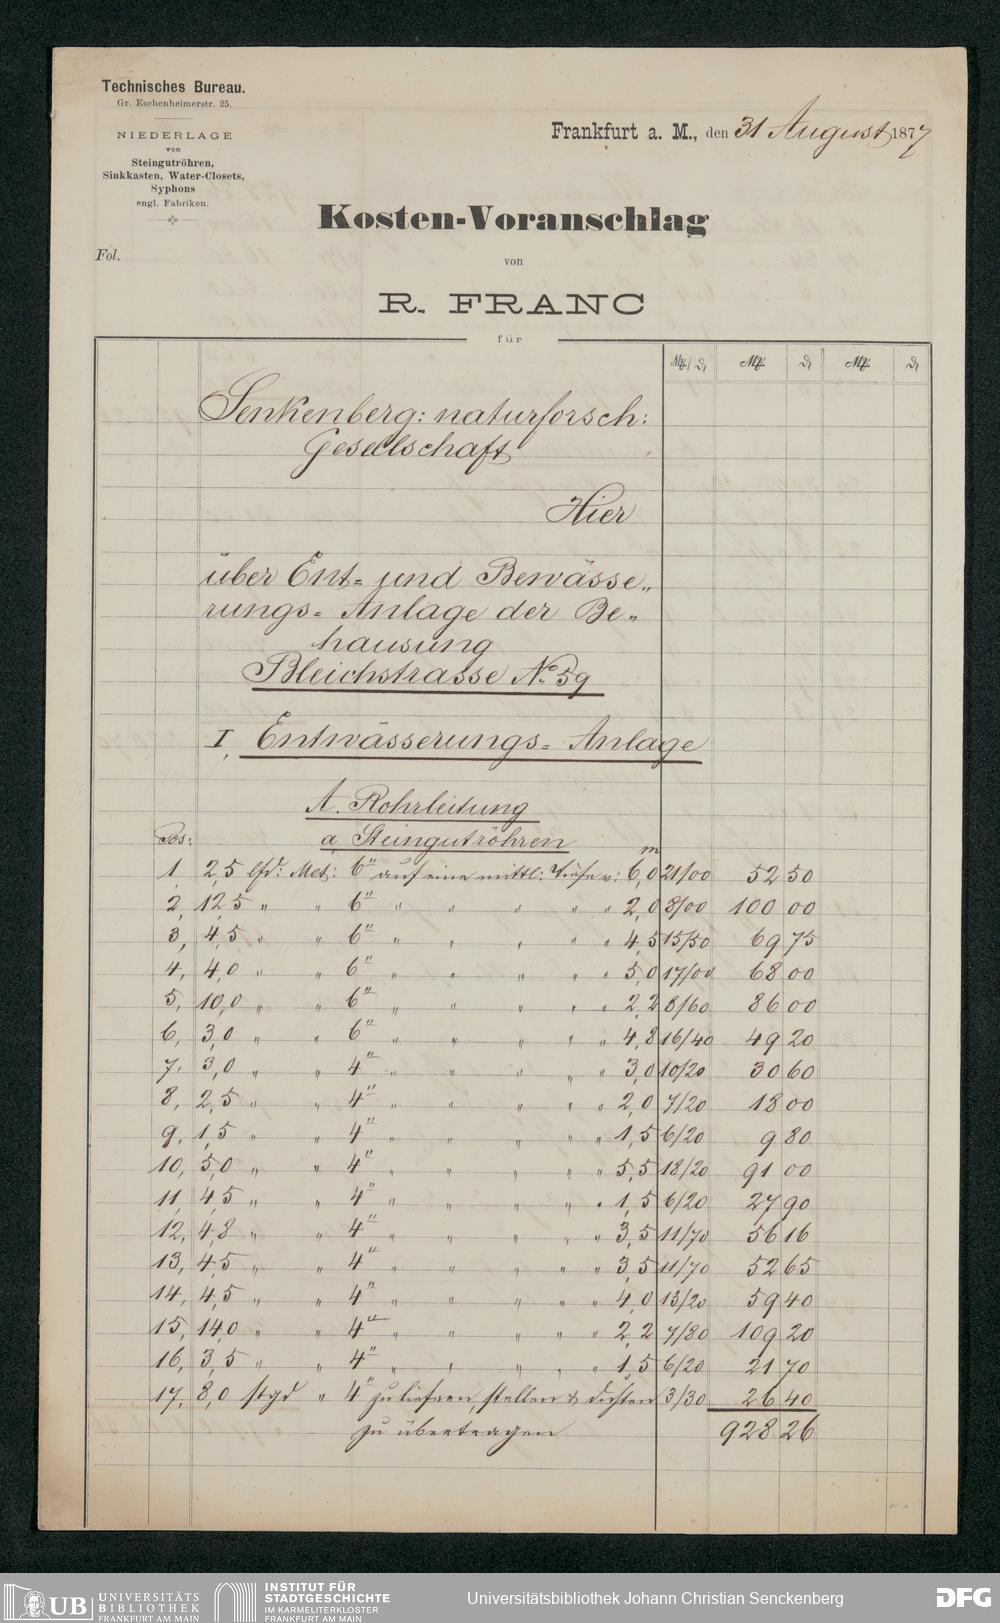 Technisches Bureau.
Gr. Eschenheimerstr. 25.
NIEDERLAGE
von
Steingutröhren,
Sinkkasten, Water-Closets,
Syphons
engl. Fabriken.
Fol.
Frankfurt a. M., den 31 August 1877
Kosten-Voranschlag
von
R. FRANC
für
Senkenberg: naturforsch:
Gesellschaft
Hier
über Ent= und Bewässe„
rungs= Anlage der Be„
hausung
Bleichstrasse No. 59
I, Entwässerungs= Anlage
A. Rohrleitung
a, Steingutröhren
Pos: m
1, 2,5 lfd: Met: 6" auf eine mittl: Tiefe v: 6,0 21/00 52 50
2, 12,5 „ „ 6" „ „ „ „ „ 2,0 8/00 100 00
3, 4,5 „ „ 6" „ „ „ „ „ 4,5 15/50 69 75
4, 4,0 „ „ 6" „ „ „ „ „ 5,0 17/00 68 00
5, 10,0 „ „ 6" „ „ „ „ „ 2,2 8/60 86 00
6, 3,0 „ „ 6" „ „ „ „ „ 4,8 16/40 49 20
7, 3,0 „ „ 4" „ „ „ „ „ 3,0 10/20 30 60
8, 2,5 „ „ 4" „ „ „ „ „ 2,0 7/20 18 00
9, 1,5 „ „ 4" „ „ „ „ „ 1,5 6/20 9 80
10, 5,0 „ „ 4" „ „ „ „ „ 5,5 18/20 91 00
11, 4,5 „ „ 4" „ „ „ „ „ 1,5 6/20 27 90
12, 4,8 „ „ 4" „ „ „ „ „ 3,5 11/70 56 16
13, 4,5 „ „ 4" „ „ „ „ „ 3,5 11/70 52 65
14, 4,5 „ „ 4" „ „ „ „ „ 4,0 13/20 59 40
15, 14,0 „ „ 4" „ „ „ „ „ 2,2 7/80 109 20
16, 3,5 „ „ 4" „ „ „ „ „ 1,5 6/20 21 70
17, 8,0 stgd „ 4" zu liefern, stellen & dichten 3/30 26 40
zu übertragen 928 26
UB UNIVERSITÄTS
BIBLIOTHEK
FRANKFURT AM MAIN
INSTITUT FÜR
STADTGESCHICHTE
IM KARMELITERKLOSTER
FRANKFURT AM MAIN
Universitätsbibliothek Johann Christian Senckenberg
DFG